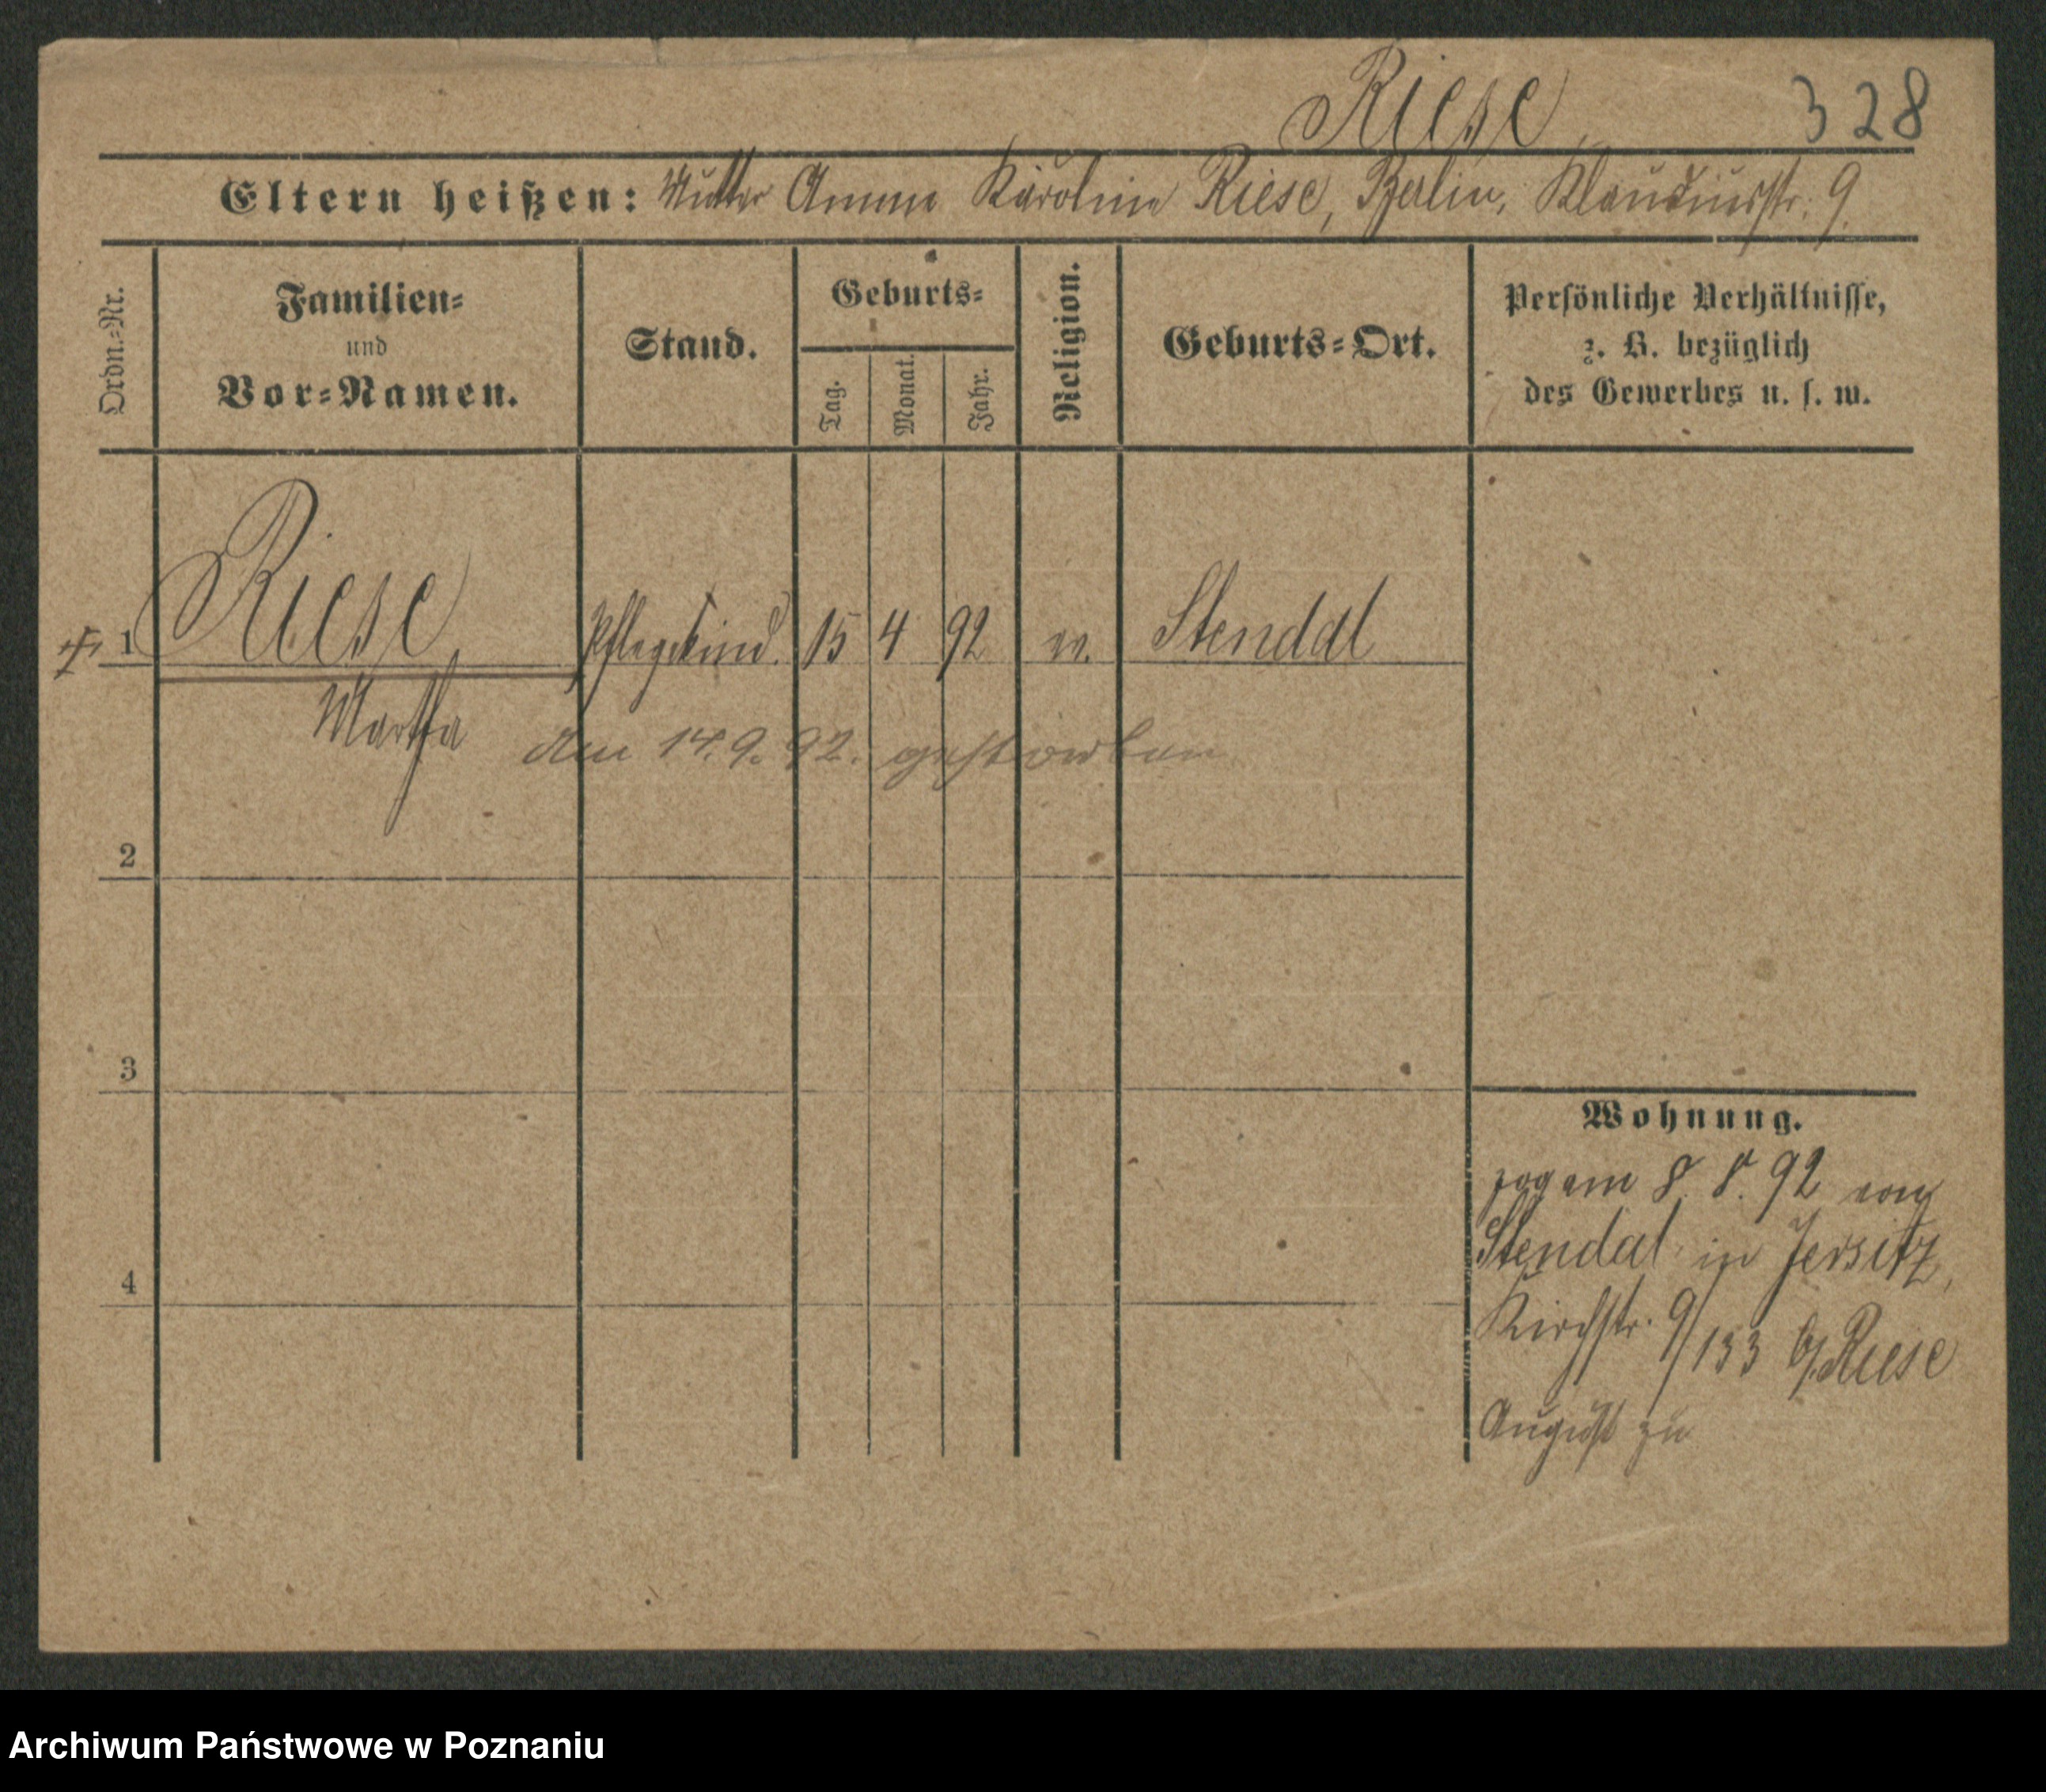 Riese 328
Eltern heißen: Mutter Anna Karoline Riese, Berlin, Klaudiusstr. 9.
Ordn.=Nr.
Familien=
und
Vor=Namen.
Stand.
Geburts=
Tag.
Monat.
Jahr.
Religion.
Geburts=Ort.
Persönliche Verhältnisse,
z. B. bezüglich
des Gewerbes u. s. w.
1 Riese Pflegekind. 15 4 92 ev. Stendal
Martha den 14.9.92. gestorben
2
3
4
Wohnung.
zog am 8. 8. 92 von
Stendal in Jersitz,
Kirchstr. 9/133 b/Riese
August zu
Archiwum Państwowe w Poznaniu